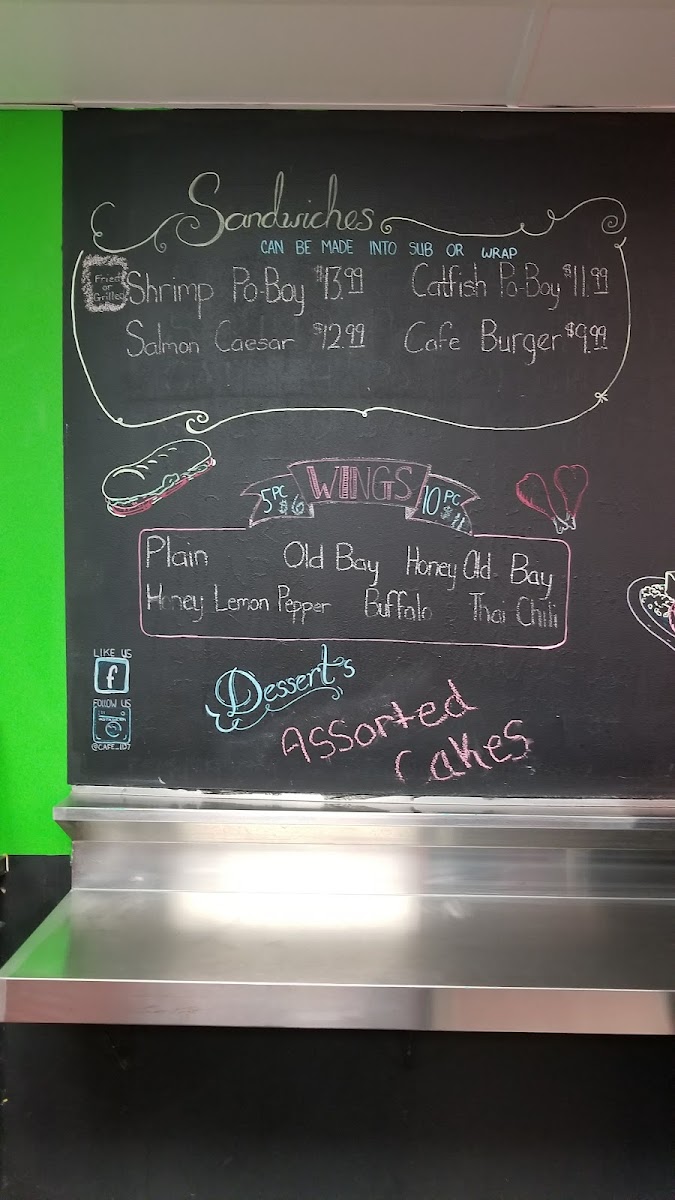 Sandwiches
CAN BE MADE INTO SUB OR WRAP
Fried or Grilled
Shrimp Po-Boy $13.99 Catfish Po-Boy $11.99
Salmon Caesar $12.99 Cafe Burger $9.99
5PC $6 WINGS 10PC $11
Plain Old Bay Honey Old Bay
Honey Lemon Pepper Buffalo Thai Chili
LIKE US
f
FOLLOW US
@CAFE_107
Dessert's
Assorted
Cakes